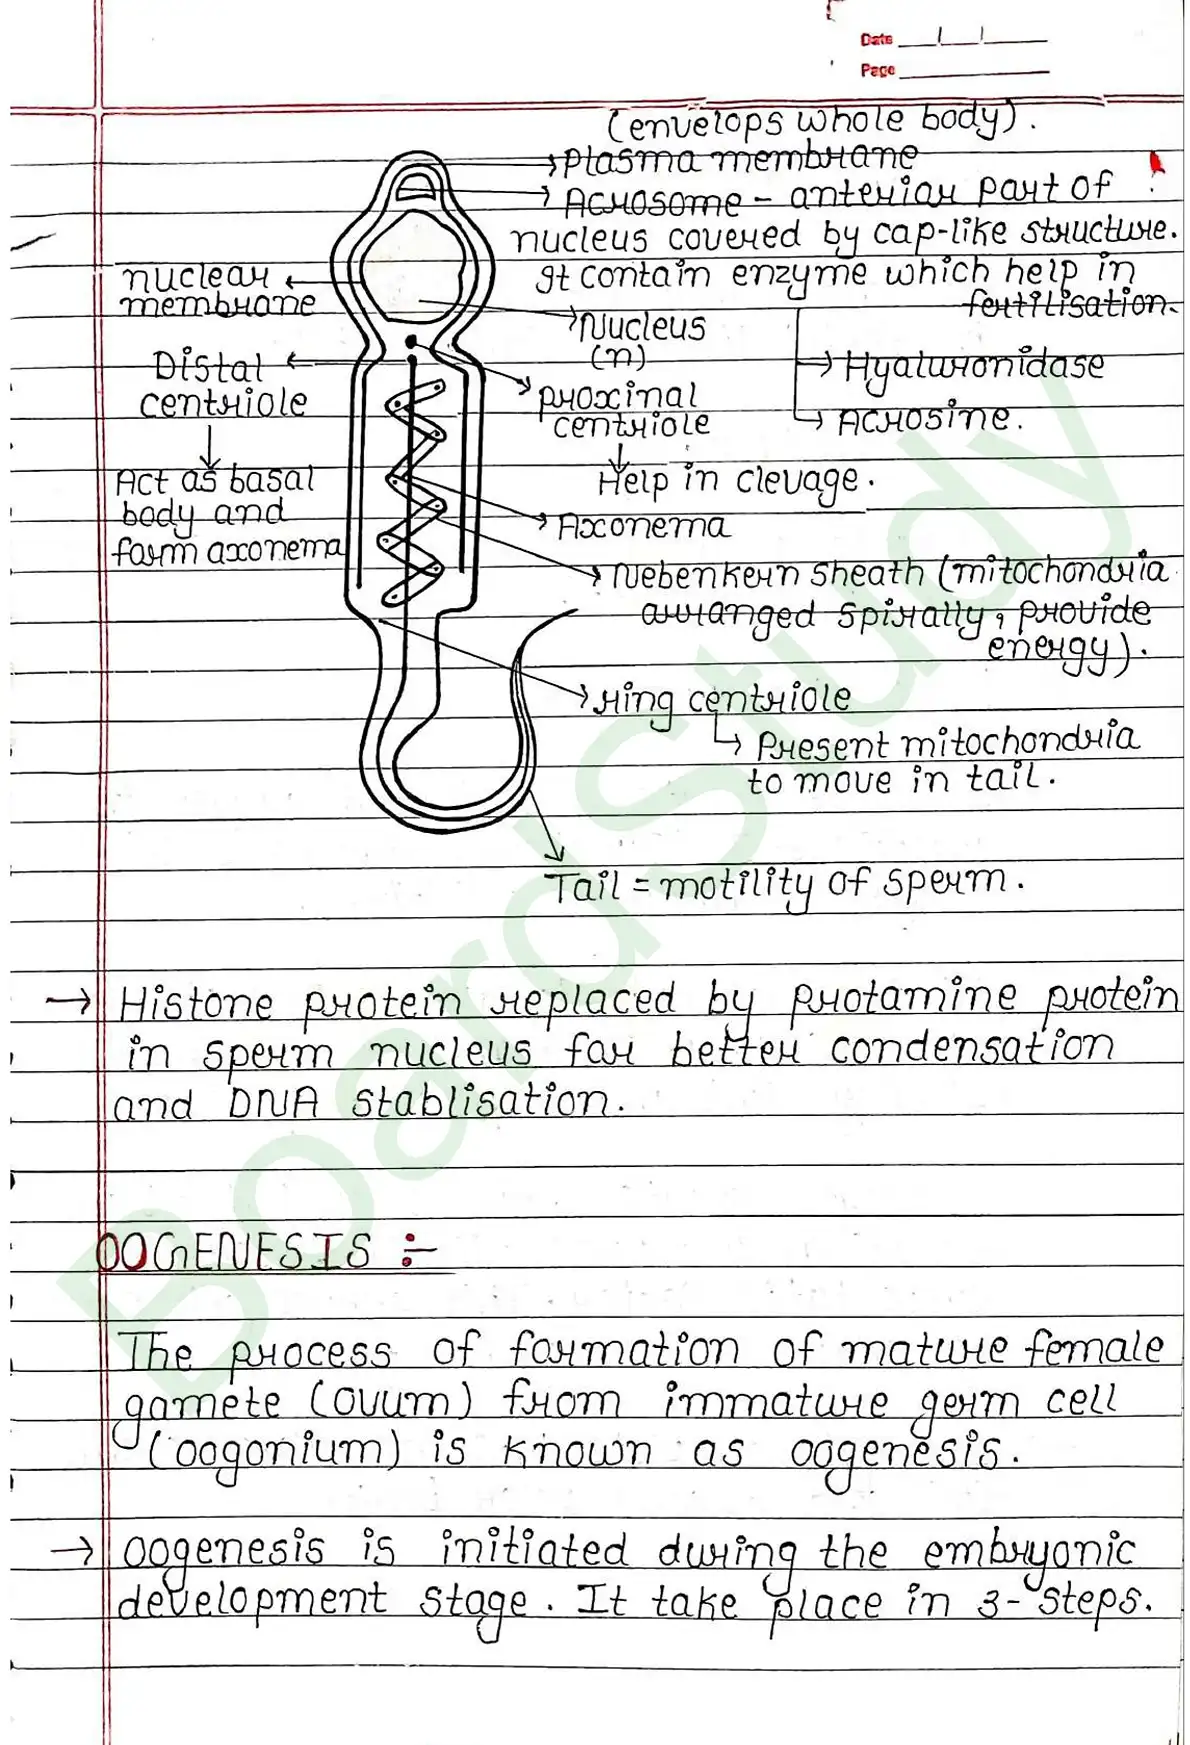 Date
Page
(envelops whole body).
Plasma membrane
Acrosome - anterior part of
nucleus covered by cap-like structure.
It contain enzyme which help in
fertilisation.
Hyaluronidase
Acrosine.
nuclear
membrane
Nucleus
(n)
Distal
centriole
Act as basal
body and
form axonema
proxinal
centriole
Help in clevage.
Axonema
Nebenkern sheath (mitochondria
arranged spirally, provide
energy).
ring centriole
Present mitochondria
to move in tail.
Tail = motility of sperm.
→ Histone protein replaced by protamine protein
in sperm nucleus for better condensation
and DNA stablisation.
OOGENESIS :-
The process of formation of mature female
gamete (ovum) from immature germ cell
(oogonium) is known as oogenesis.
→ oogenesis is initiated during the embryonic
development stage. It take place in 3-steps.
BoardStudy